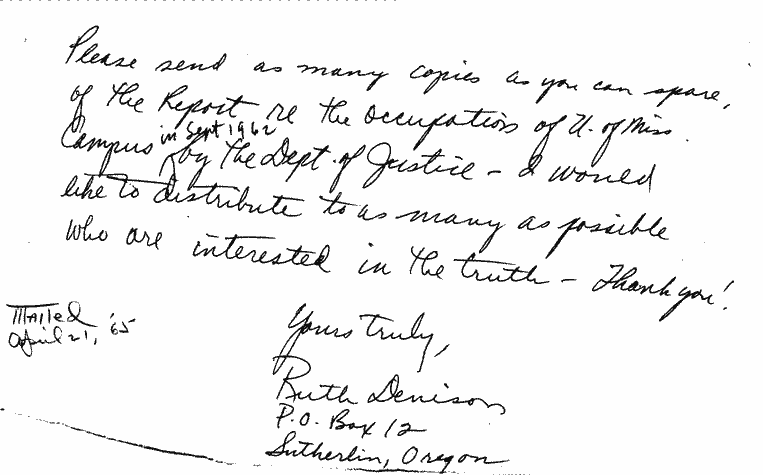 Please send as many copies as you can spare,
of the Report re the Occupation of U. of Miss.
in Sept 1962
Campus by the Dept. of Justice - I would
like to distribute to as many as possible
who are interested in the truth - Thank you!
Mailed
April 21, '65
Yours truly,
Ruth Denison
P.O. Box 12
Sutherlin, Oregon